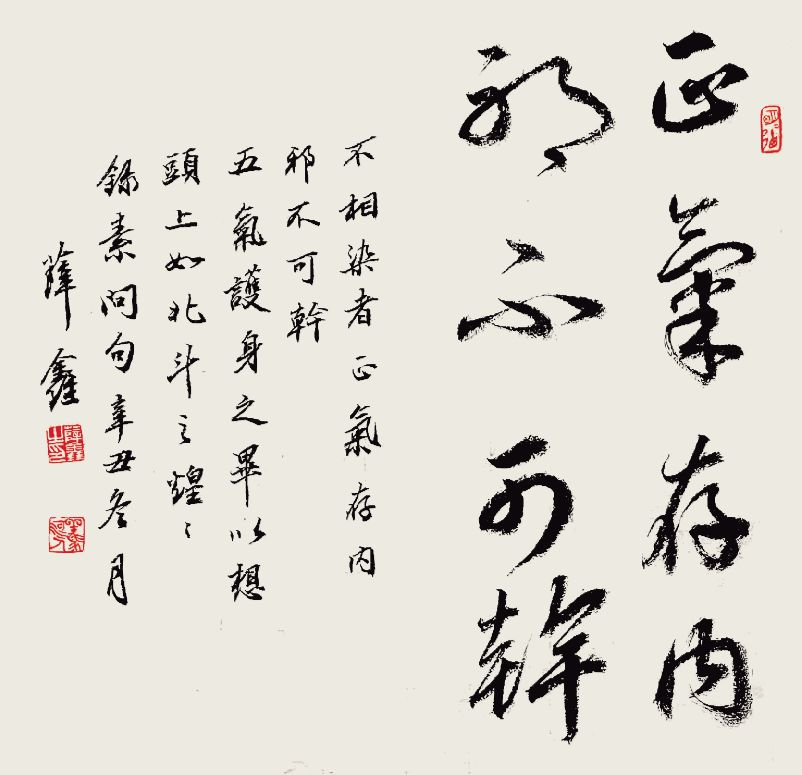 正氣存内
邪不可幹
不相染者正氣存内
邪不可幹
五氣護身之畢以想
頭上如北斗之煌〻
録素問句辛丑冬月
薛鑫